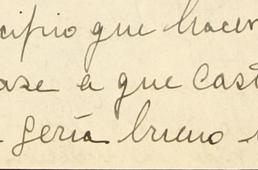 cipio que hacer
ase a que Cast
sería bueno